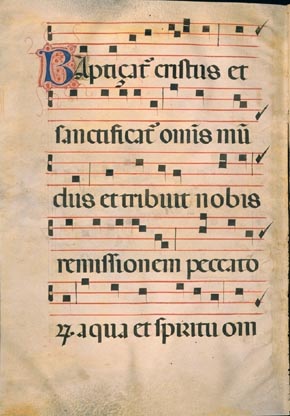 Baptiçat᷑ cristus et
sanctificat᷑ om̄is mū
dus et tribuit nobis
remissionem peccato
ꝝ. aqua et spiritu om